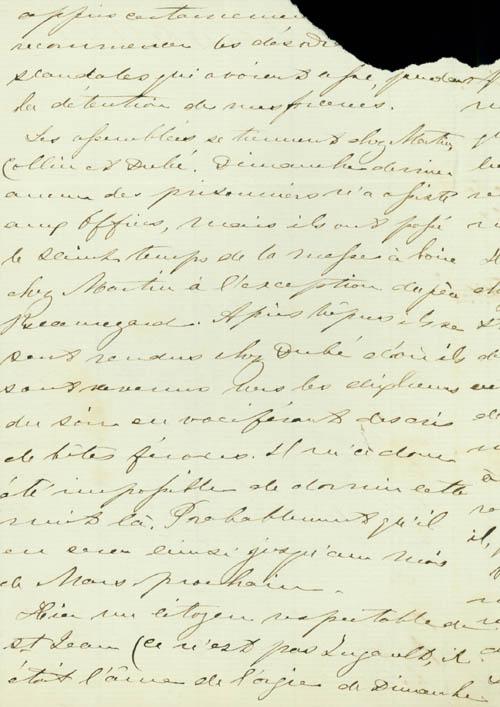 appris certainement
recommencer les désord
scandales qui avaient agité, pendant
la détention de nos frères.
Les assemblées se tiennent chez Martin,
Collin et Dubé. Dimanche dernier
aucun des prisonniers n'a assisté
aux Offices, mais ils ont passé
le saint temps de la messe à boire
chez Martin à l'exception du père
Beauregard. Après Vêpres ils se
sont rendus chez Dubé d'où ils
sont revenus vers les dix heures
du soir en vociférant des cris
de bêtes féroces. Il m'a donc
été impossible de dormir cette
nuit là. Probablement qu'il
en sera ainsi jusqu'au mois
de Mars prochain.
Hier un citoyen respectable de
St Jean (ce n'est pas Lugault, il
était l'âme de l'orgie de Dimanche